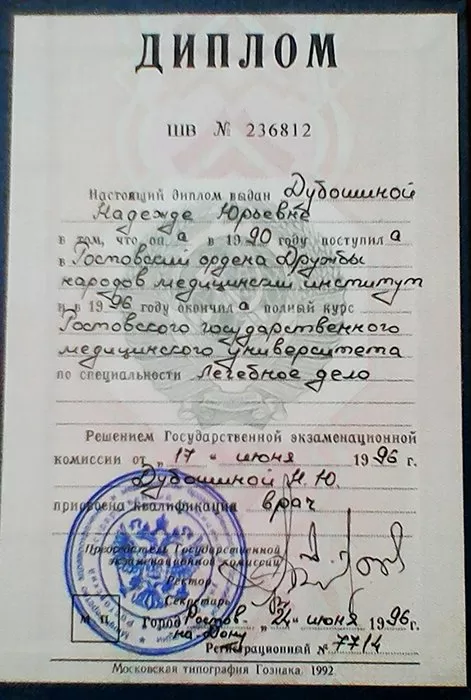 ДИПЛОМ
ШВ № 236812
Настоящий диплом выдан Дубошиной
Надежде Юрьевне
в том, что он а в 1990 году поступил а
в Ростовский ордена Дружбы
народов медицинский институт
и в 1996 году окончил а полный курс
Ростовского государственного
медицинского университета
по специальности Лечебное дело
Решением Государственной экзаменационной
комиссии от „17“ июня 1996 г.
Дубошиной Н.Ю.
присвоена квалификация врач
Председатель Государственной
экзаменационной комиссии
Ректор
Секретарь
М. П. Город Ростов- „24“ июня 1996 г.
на-Дону
Регистрационный № 7714
Московская типография Гознака. 1992